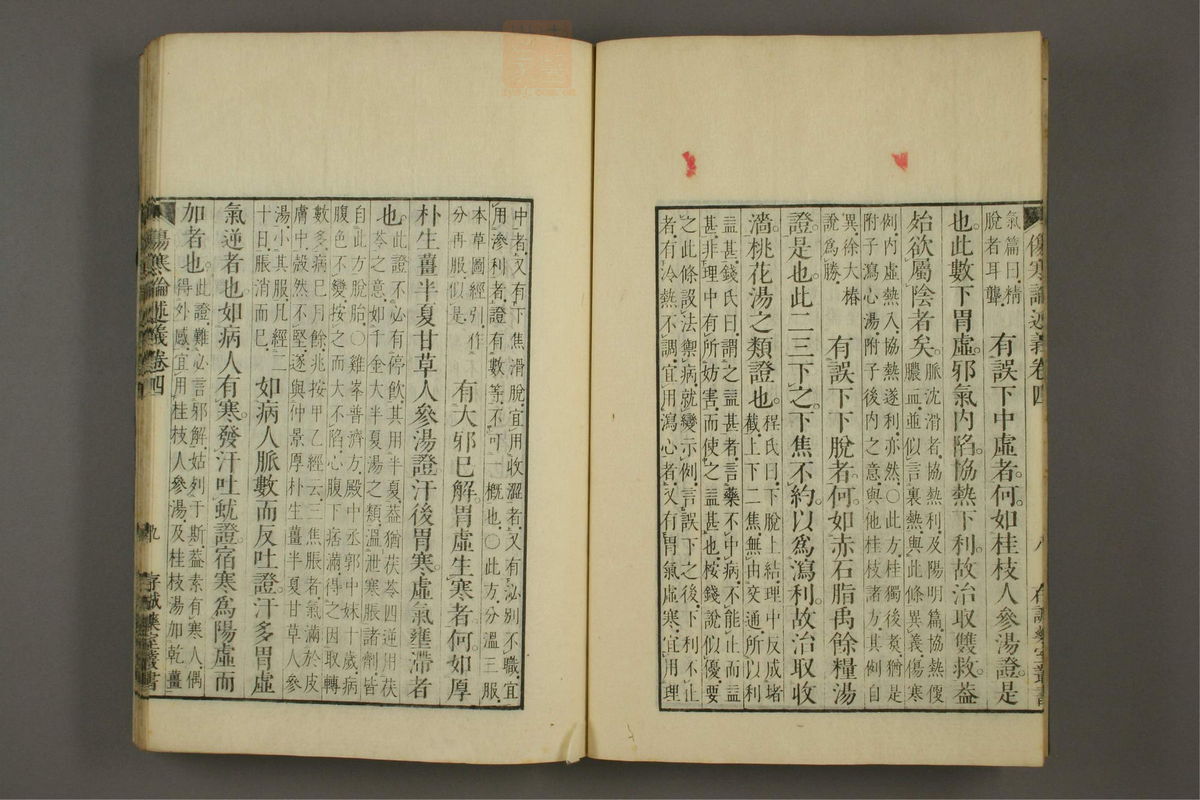 傷寒論述義卷四
八
存誠藥室叢書
氣篇曰精
脫者耳聾
有誤下中虛者何如桂枝人參湯證是
也此數下胃虛邪氣內陷協熱下利故治取雙救蓋
始欲屬陰者矣
脈沈滑者協熱利及陽明篇協熱便
膿血並似言裏熱與此條異義傷寒
例內虛熱入協熱遂利亦然○此方桂獨後煮猶是
附子瀉心湯附子後內之意與他桂枝諸方其例自
異徐大椿
說爲勝
有誤下下脫者何如赤石脂禹餘糧湯
證是也此二三下之下焦不約以爲瀉利故治取收
濇桃花湯之類證也
程氏曰下脫上結理中反成堵
截上下二焦無由交通所以利
益甚錢氏曰謂之益甚者言藥不中病不能止而益
甚非理中有所妨害而使之益甚也桉錢說似優要
之此條設法禦病就變示例言誤下之後下利不止
者有冷熱不調宜用瀉心者又有胃氣虛寒宜用理
中者又有下焦滑脫宜用收澀者又有泌別不職宜
用滲利者證有數等不可一概也○此方分溫三服
本草圖經引作
分再服似是
有大邪已解胃虛生寒者何如厚
朴生薑半夏甘草人參湯證汗後胃寒虛氣壅滯者
也
此證不必有停飲其用半夏蓋猶茯苓四逆用茯
苓之意如千金大半夏湯之類溫泄寒脹諸劑皆
自此方脫胎○雞峯普濟方殿中丞郭中妹十歲病
腹色不變按之而大不陷心腹下痞滿得之因取轉
數多病已月餘兆按甲乙經云三焦脹者氣滿於皮
膚中殼然不堅遂與仲景厚朴生薑半夏甘草人參
湯小其服凡經二
十日脹消而已
如病人脈數而反吐證汗多胃虛
氣逆者也如病人有寒發汗吐蚘證宿寒爲陽虛而
加者也
此證難必言邪解姑列于斯蓋素有寒人偶
得外感宜用桂枝人參湯及桂枝湯加乾薑
傷寒論述義卷四
九
存誠藥室叢書